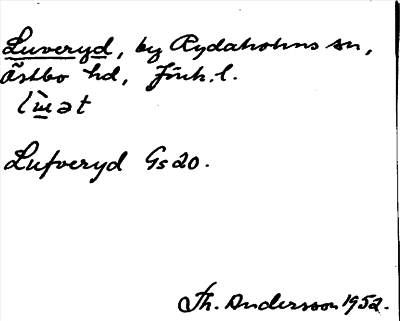 Luveryd, by Rydaholms sn,
Östbo hd, Jönk. l.
Lufveryd Gs 20.
Th. Andersson 1952.